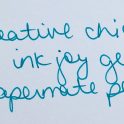 eative chi
ink joy ge
apermate pe